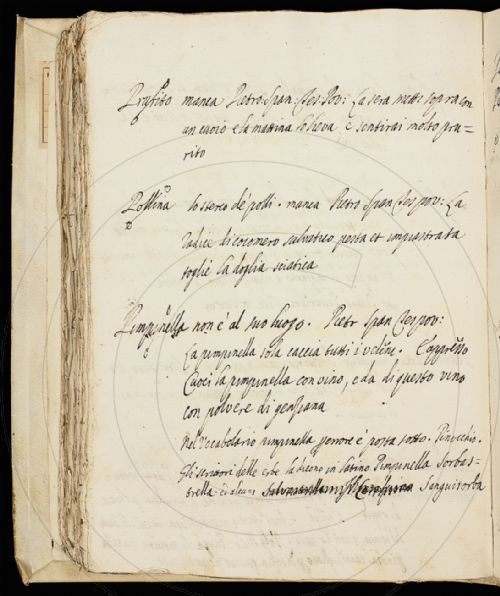 Prurito manca Pietro Span: Tes: Pov: La sera metti sopra con
un cuoio e la mattina so lieva, e sentirai molto pru-
rito
Pollina lo sterco de polli. manca Pietro Span Tes pov: La
radice di cocomero salvatico pesta et impiastrata
toglie la doglia sciatica
Pimpinella non è al suo luogo. Pietr Span Tes pov:
La pimpinella sola caccia tutti i veleni. E appresso
Cuoci la pimpinella con vino, e da di questo vino
con polvere di genziana
Nel Vocabolario pimpinella per errore è posta sotto. Pinocchio.
Gli scrittori delle erbe la dicono in latino Pimpinella Sorbas-
trella ed alcuni Sanguisorba